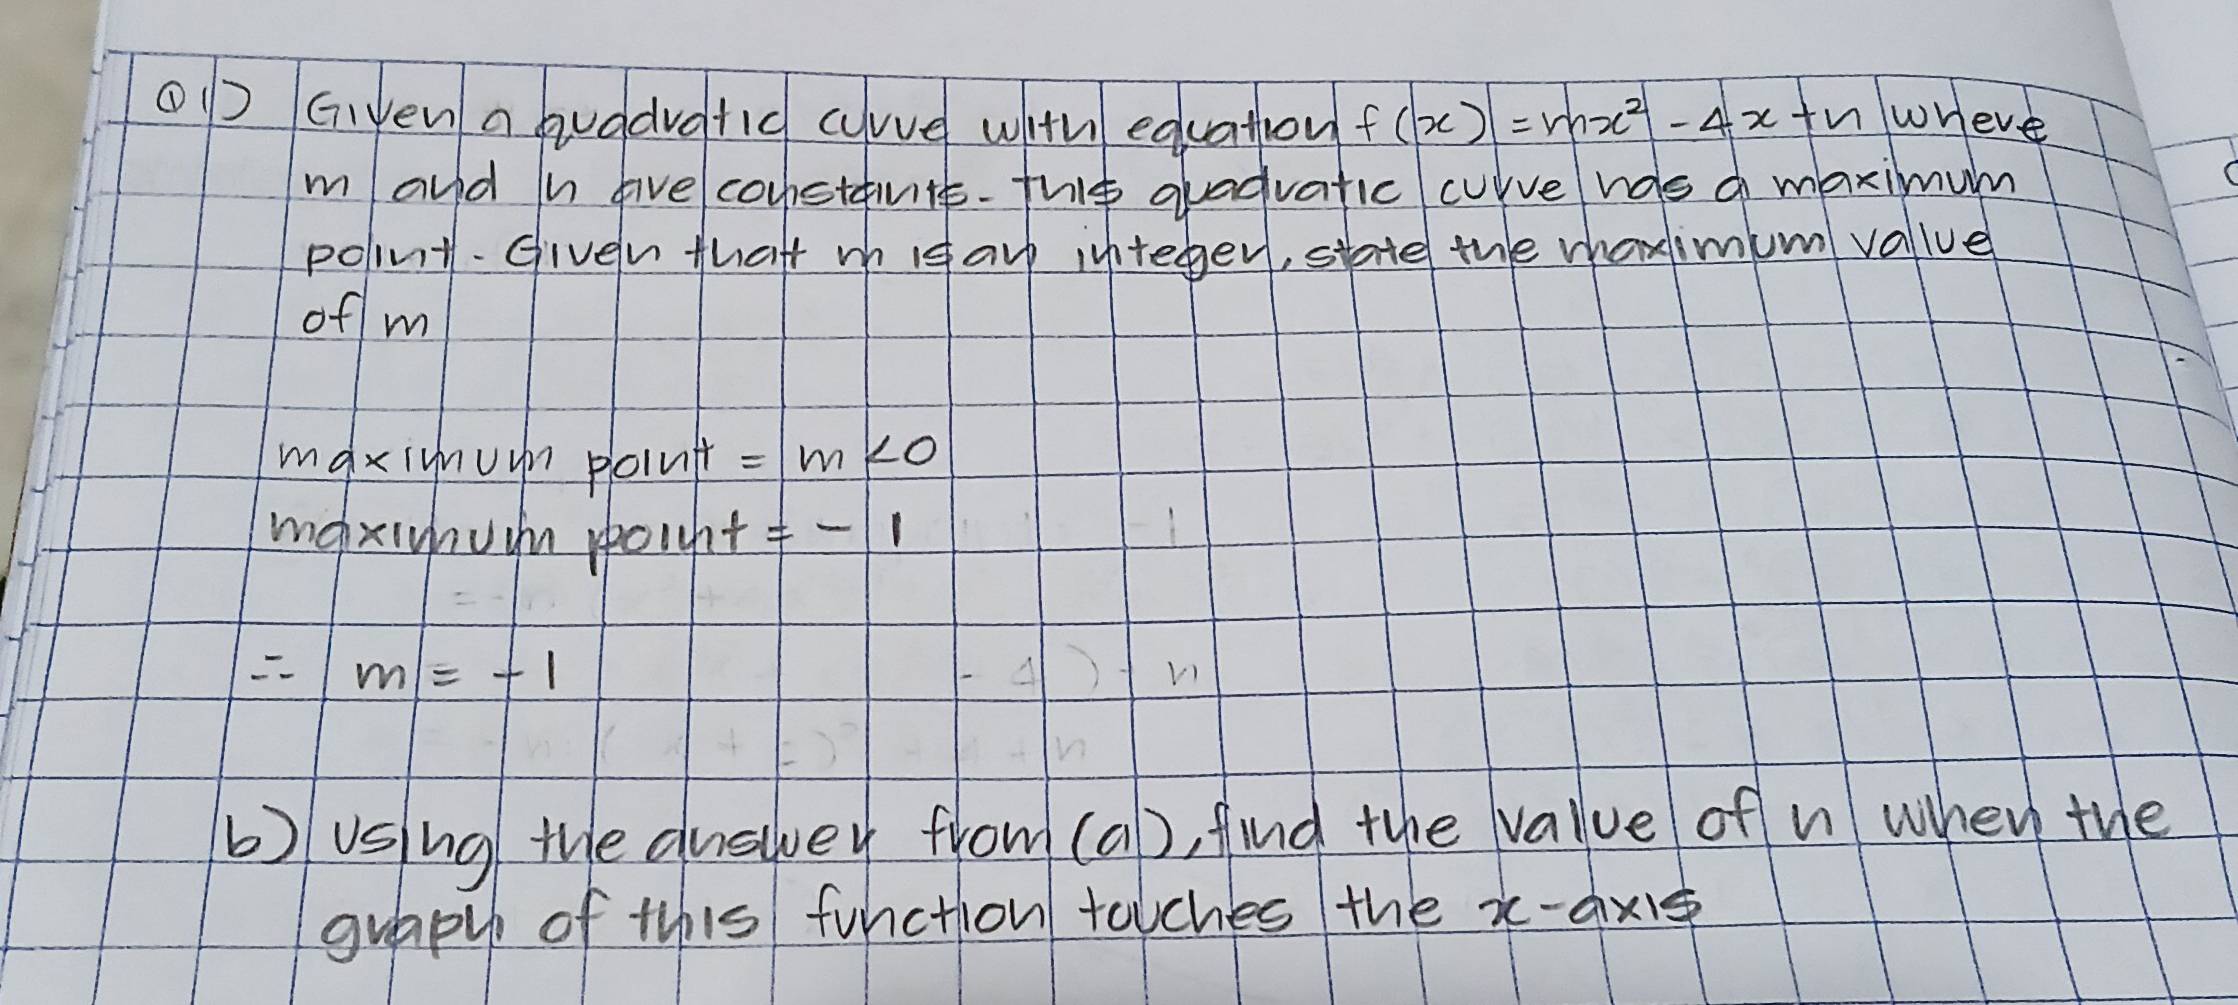 Q1) Given a quadratic curve with equation f(x) = mx² - 4x + n where
m and n are constants. This quadratic curve has a maximum
point. Given that m is an integer, state the maximum value
of m
maximum point = m < 0
maximum point = - 1
∴ m = -1
b) Using the answer from (a), find the value of n when the
graph of this function touches the x-axis